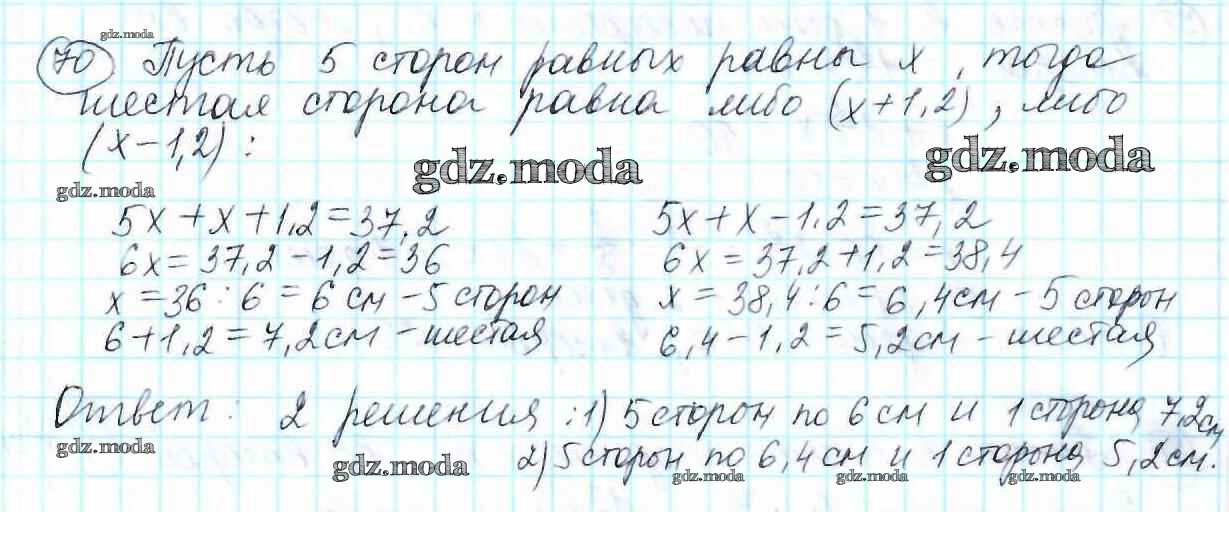 gdz.moda
70 Пусть 5 сторон равных равны x, тогда
шестая сторона равна либо (x+1,2), либо
(x-1,2):
gdz.moda gdz.moda
gdz.moda
5x+x+1,2=37,2 5x+x-1,2=37,2
6x=37,2-1,2=36 6x=37,2+1,2=38,4
x=36:6=6 см - 5 сторон x=38,4:6=6,4 см - 5 сторон
6+1,2=7,2 см - шестая 6,4-1,2=5,2 см - шестая
Ответ: 2 решения: 1) 5 сторон по 6 см и 1 сторона 7,2 см
gdz.moda
2) 5 сторон по 6,4 см и 1 сторона 5,2 см.
gdz.moda gdz.moda gdz.moda gdz.moda